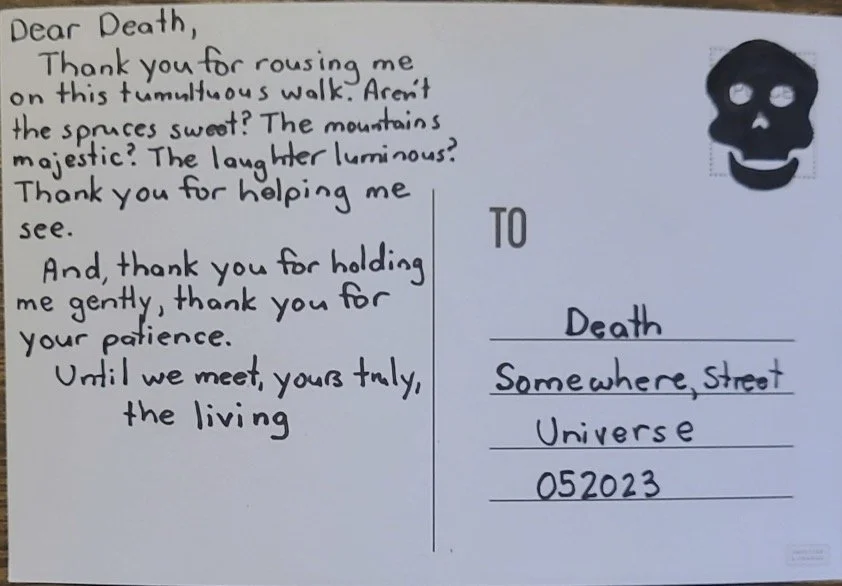 Dear Death,
Thank you for rousing me
on this tumultuous walk. Aren't
the spruces sweet? The mountains
majestic? The laughter luminous?
Thank you for helping me
see.
And, thank you for holding
me gently, thank you for
your patience.
Until we meet, yours truly,
the living
TO
Death
Somewhere, Street
Universe
052023